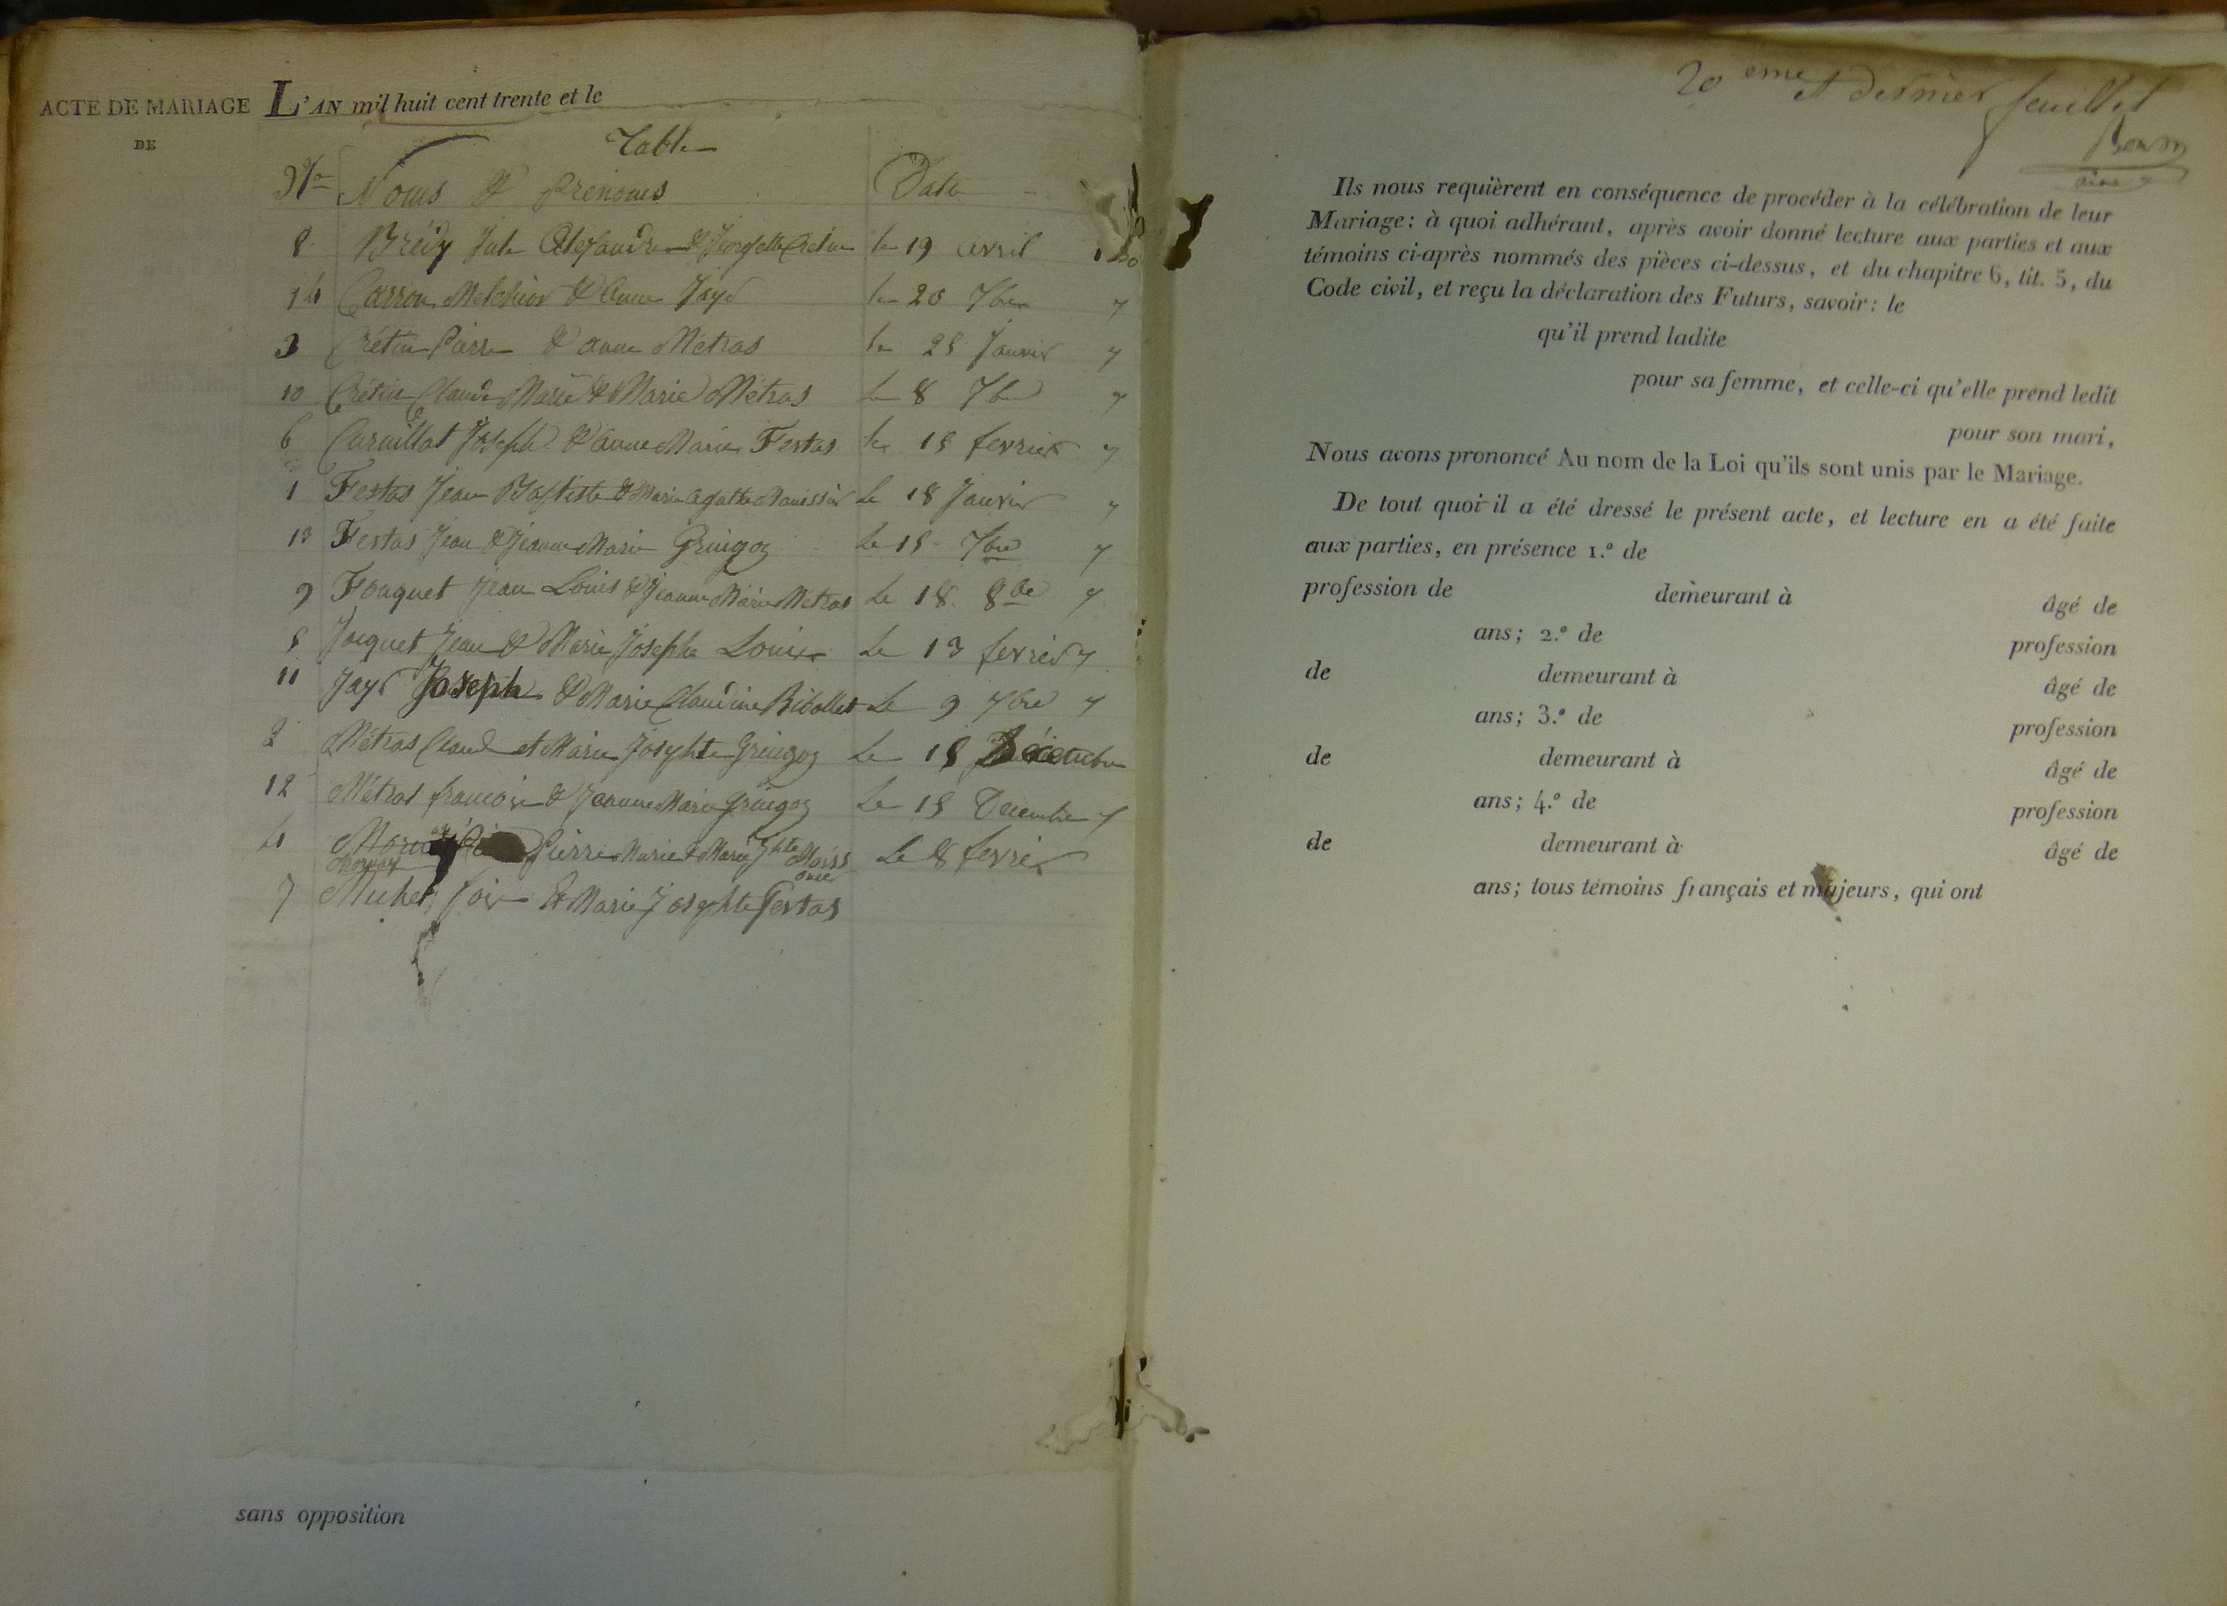 ACTE DE MARIAGE
DE
L'AN mil huit cent trente et le
Table
Nos Noms & Prénoms Date
8 Brédy Jule Alexandre & Josette Cretin le 19 avril
14 Carron Melchior & Anne Jayr le 20 7bre
3 Crétin Pierre & anne Métras le 25 Janvier
10 Crétin Claude Marie & Marie Métras le 8 7bre
6 Curuillat Joseph & anne Marie Festas le 15 fevrier
1 Festas Jean Baptiste & Marie agathe le 18 Janvier
13 Festas Jean & Jeanne Marie Gringoz le 15 7bre
9 Fouquet Jean Louis & Jeanne Marie Metras Le 18 8bre
5 Jacquet Jean & Marie Josephe Louise Le 13 fevrier
11 Jayr Joseph & Marie Claudine Bibollet Le 9 7bre
2 Métras Claude et Marie Josephte Gringoz Le 15
12 Métras francois & Jeanne Marie Gringoz Le 15 Decembre
4 Pierre Marie & Marie Jphte Le 8 fevrier
7 Michel & Marie Josephte Festas
sans opposition
20 eme et dernier feuillet
Ils nous requièrent en conséquence de procéder à la célébration de leur
Mariage: à quoi adhérant, après avoir donné lecture aux parties et aux
témoins ci-après nommés des pièces ci-dessus, et du chapitre 6, tit. 5, du
Code civil, et reçu la déclaration des Futurs, savoir: le
qu'il prend ladite
pour sa femme, et celle-ci qu'elle prend ledit
pour son mari,
Nous avons prononcé Au nom de la Loi qu'ils sont unis par le Mariage.
De tout quoi il a été dressé le présent acte, et lecture en a été faite
aux parties, en présence 1.º de
profession de demeurant à âgé de
ans; 2.º de profession
de demeurant à âgé de
ans; 3.º de profession
de demeurant à âgé de
ans; 4.º de profession
de demeurant à âgé de
ans; tous témoins français et majeurs, qui ont